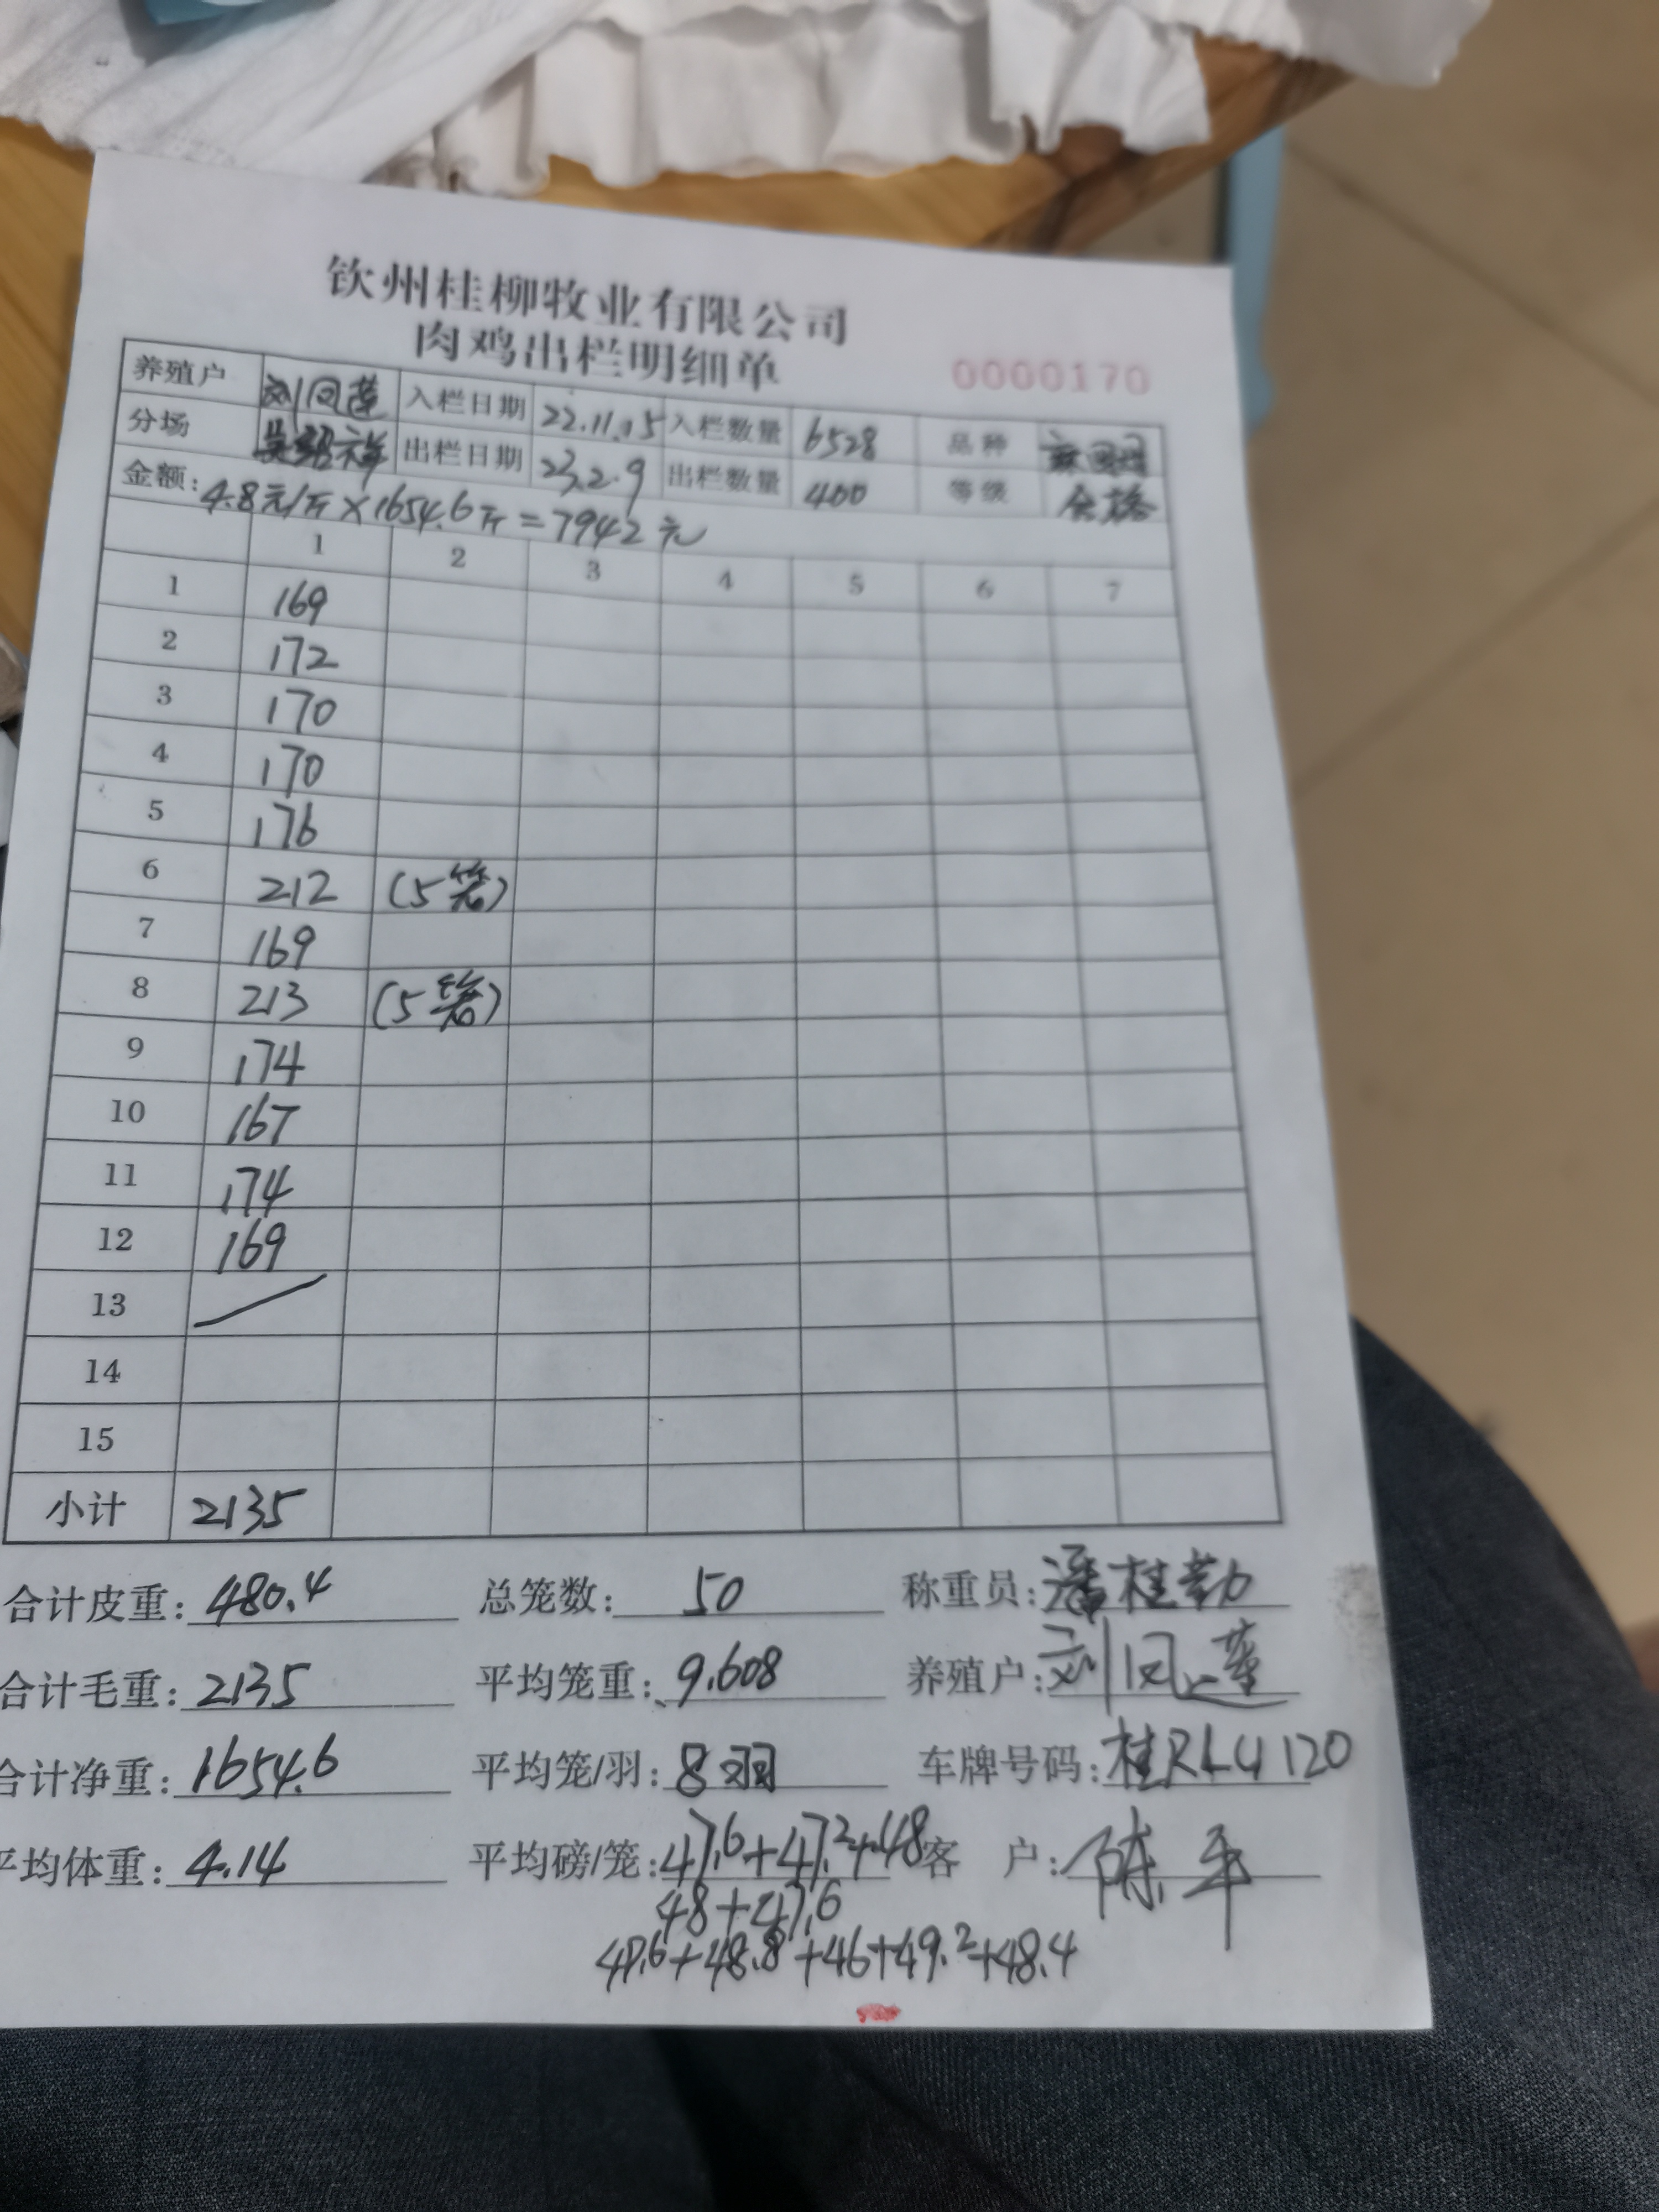 钦州桂柳牧业有限公司
肉鸡出栏明细单
0000170
养殖户 刘凤莲 入栏日期 22.11.15 入栏数量 6528 品种
分场 吴绍祥 出栏日期 23.2.9 出栏数量 400 等级 合格
金额: 4.8元/斤×1654.6斤=7942元
1 2 3 4 5 6 7
1 169
2 172
3 170
4 170
5 176
6 212 (5笼)
7 169
8 213 (5笼)
9 174
10 167
11 174
12 169
13
14
15
小计 2135
合计皮重: 480.4 总笼数: 50 称重员: 潘桂勤
合计毛重: 2135 平均笼重: 9.608 养殖户: 刘凤莲
合计净重: 1654.6 平均笼/羽: 8羽 车牌号码: 桂RLU120
平均体重: 4.14 平均磅/笼: 47.6+47.2+48 客 户: 陈平
48+47.6
47.6+48.8+46+49.2+48.4